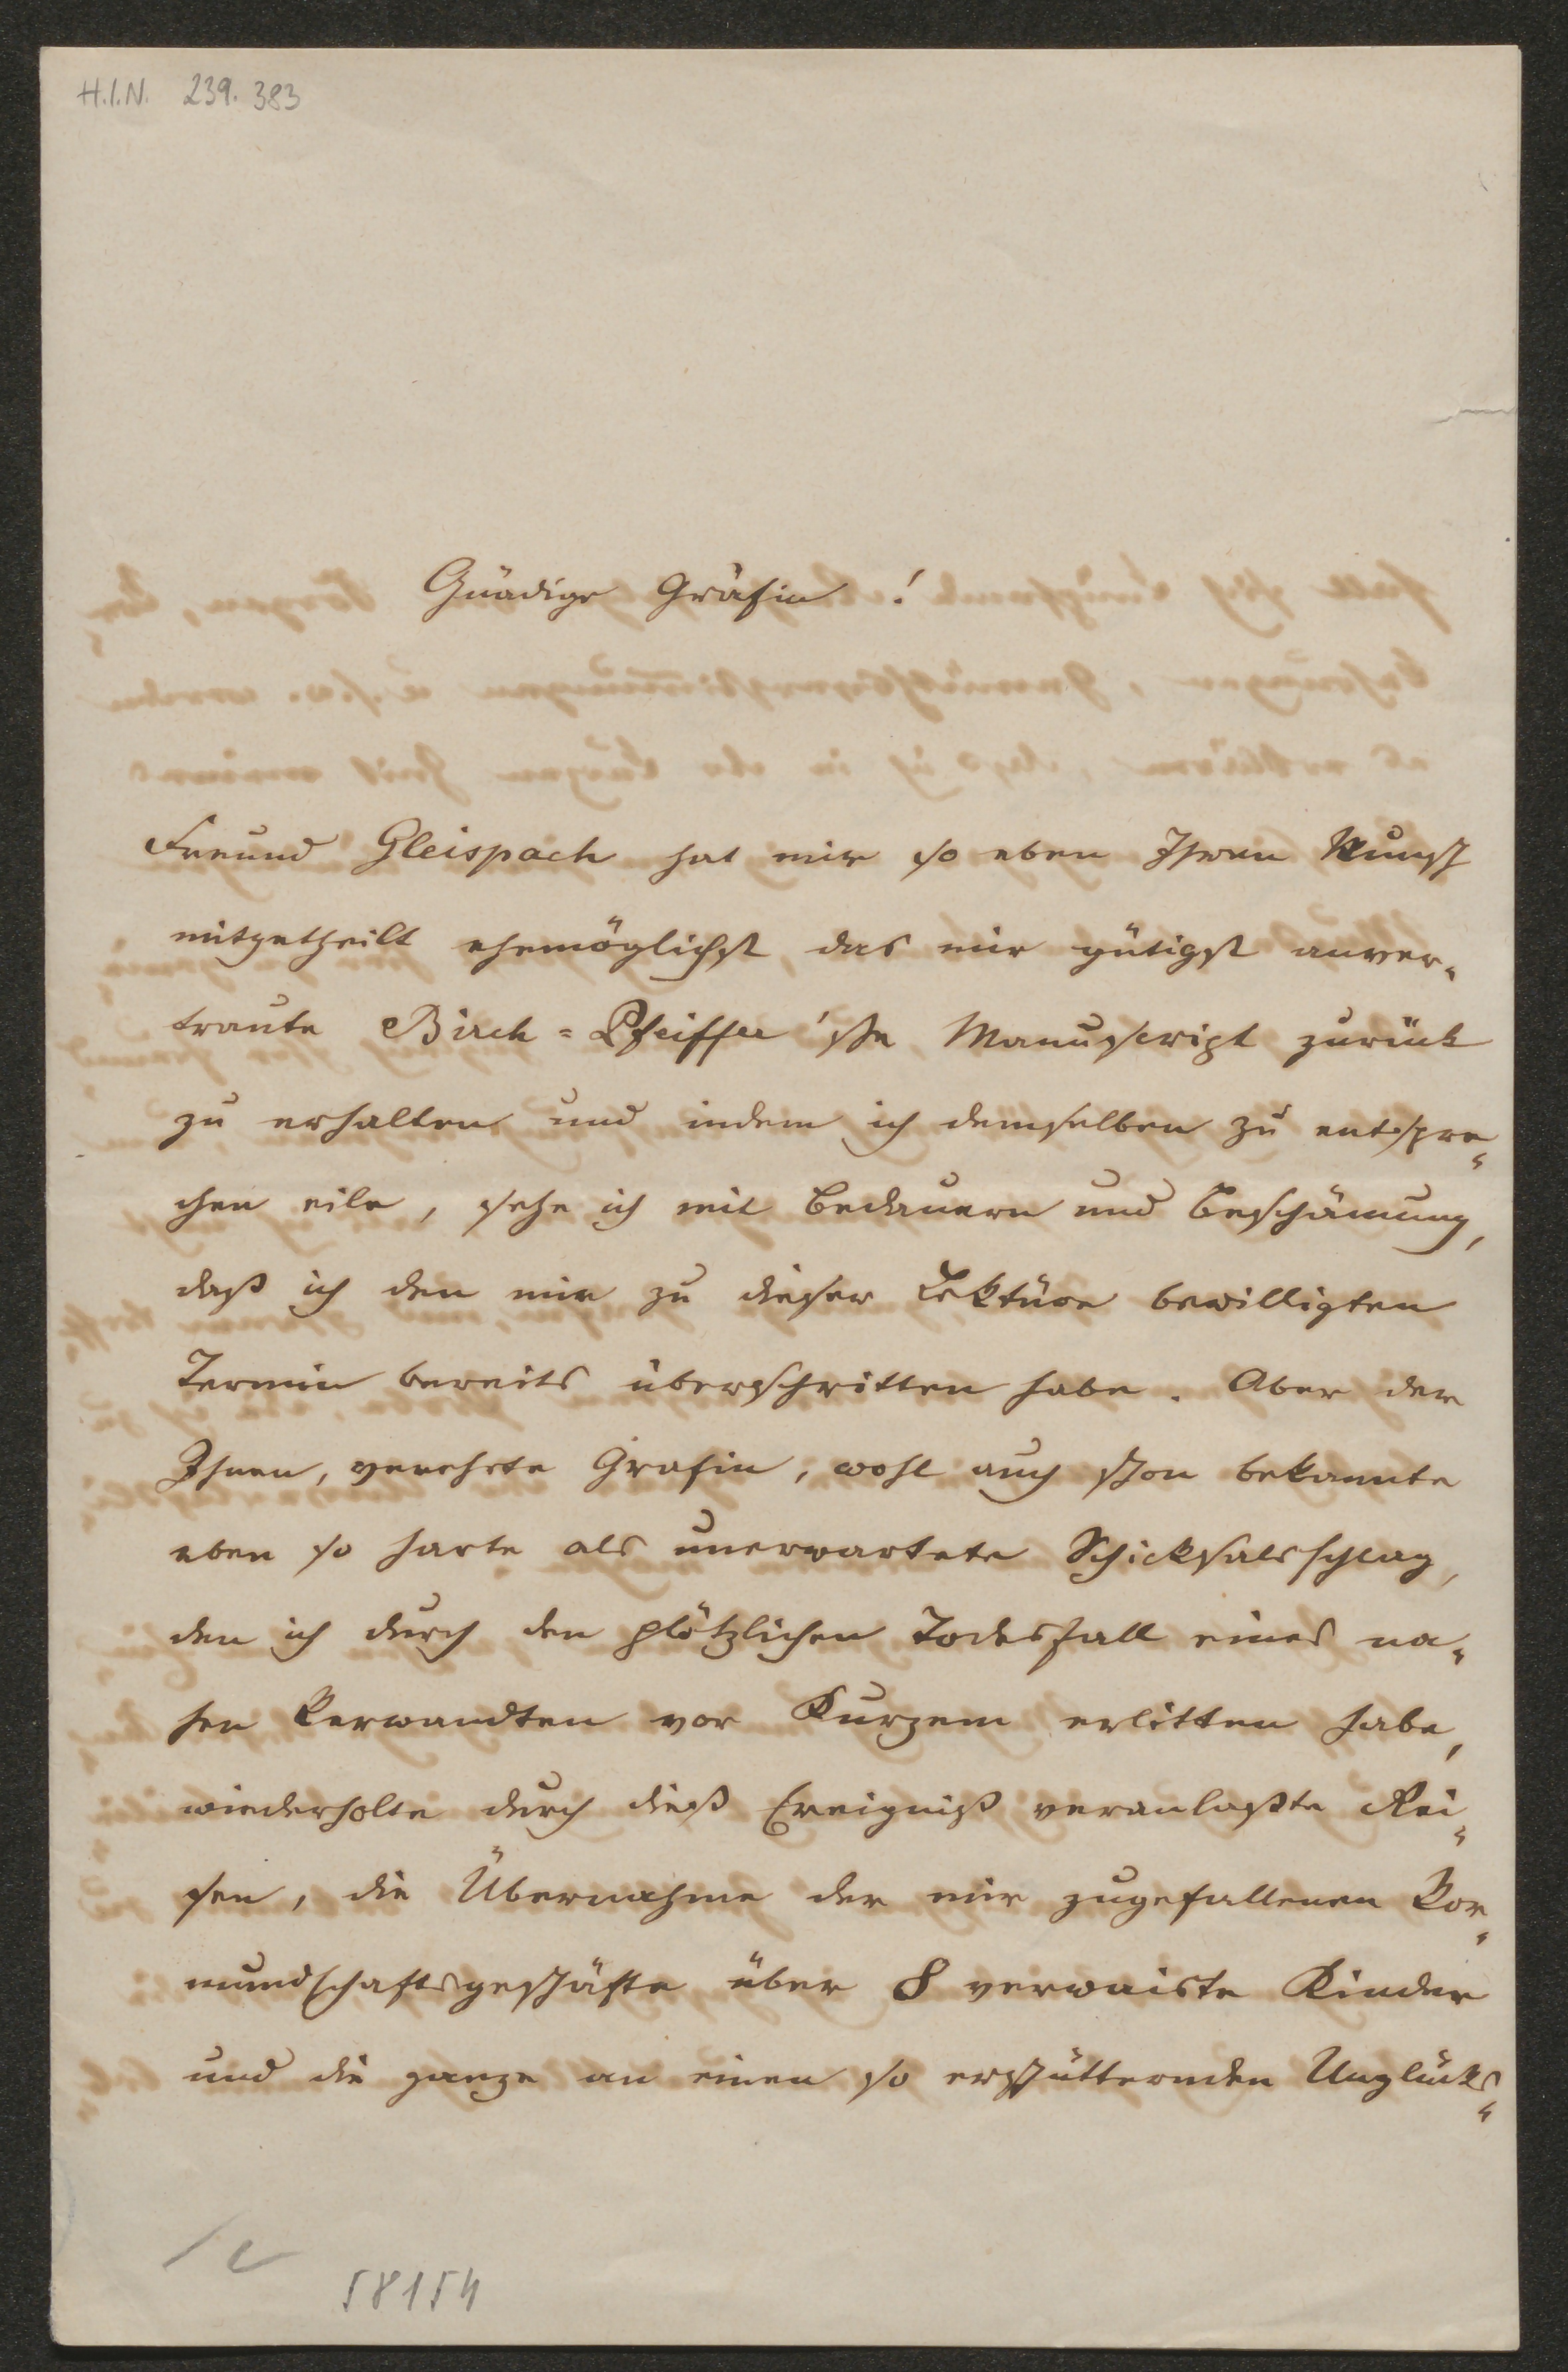 H.I.N. 239.383
Gnädige Gräfin!
Freund Gleispach hat mir so eben Ihren Wunsch
mitgetheilt ehemöglichst das mir gütigst anver-
traute Birch-Pfeiffer'sche Manuscript zurück
zu erhalten und indem ich demselben zu entspre-
chen eile, sehe ich mit Bedauern und Beschämung,
daß ich den mir zu dieser Lektüre bewilligten
Termin bereits überschritten habe. Aber der
Ihnen, verehrte Gräfin, wohl auch schon bekannte
eben so harte als unerwartete Schicksalsschlag,
den ich durch den plötzlichen Todesfall eines na-
hen Verwandten vor Kurzem erlitten habe,
wiederholte durch dieß Ereigniß veranlaßte Rei-
sen, die Übernahme der mir zugefallenen Vor-
mundschaftsgeschäfte über 8 verwaiste Kinder
und die ganze an einen so erschütternden Unglücks-
58154